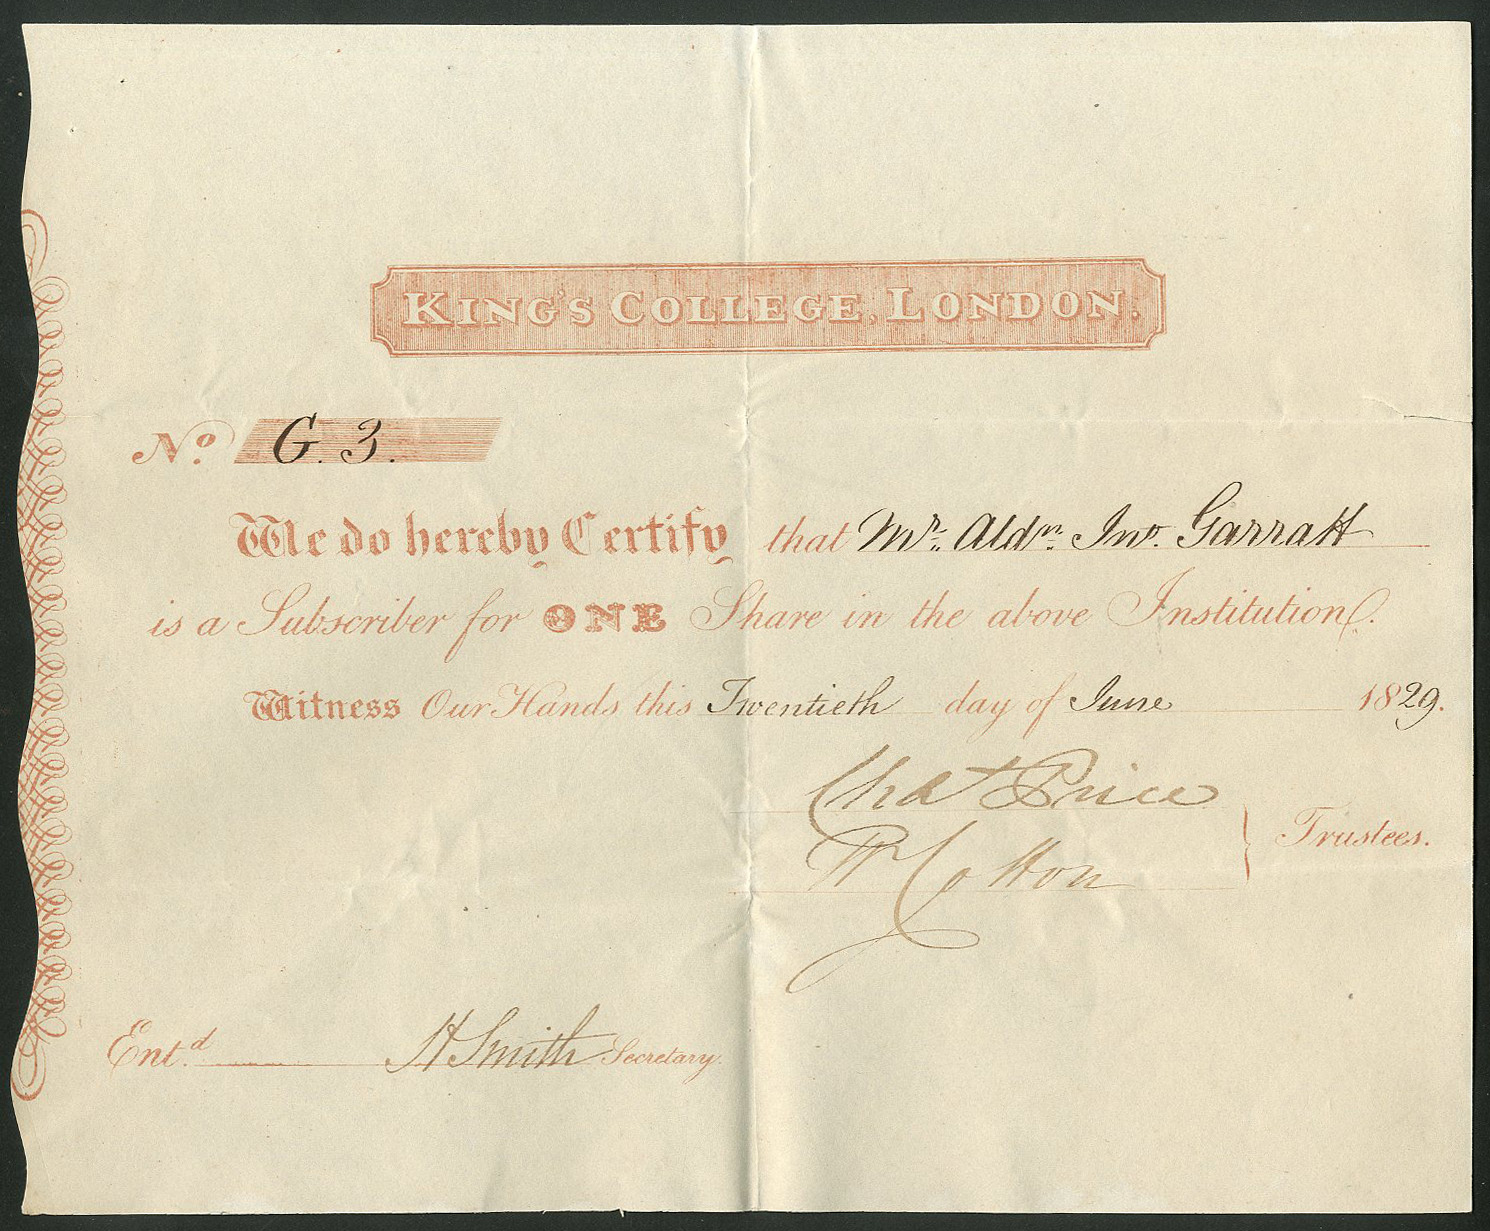 KING'S COLLEGE, LONDON.
No. G. 3.
We do hereby Certify that Mr. Aldn. Jno. Garratt
is a Subscriber for ONE Share in the above Institution.
Witness Our Hands this Twentieth day of June 1829.
Chas Price
W Cotton
Trustees.
Entd. H Smith Secretary.